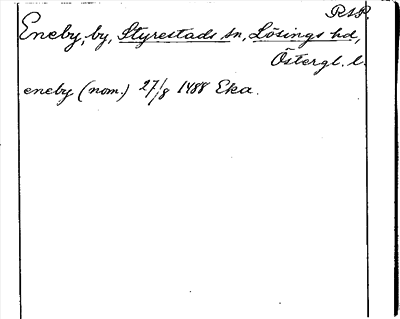 R.S.P.
Eneby, by, Styrestads sn, Lösings hd,
Östergl. l.
eneby (nom.) 27/8 1488 Eka.